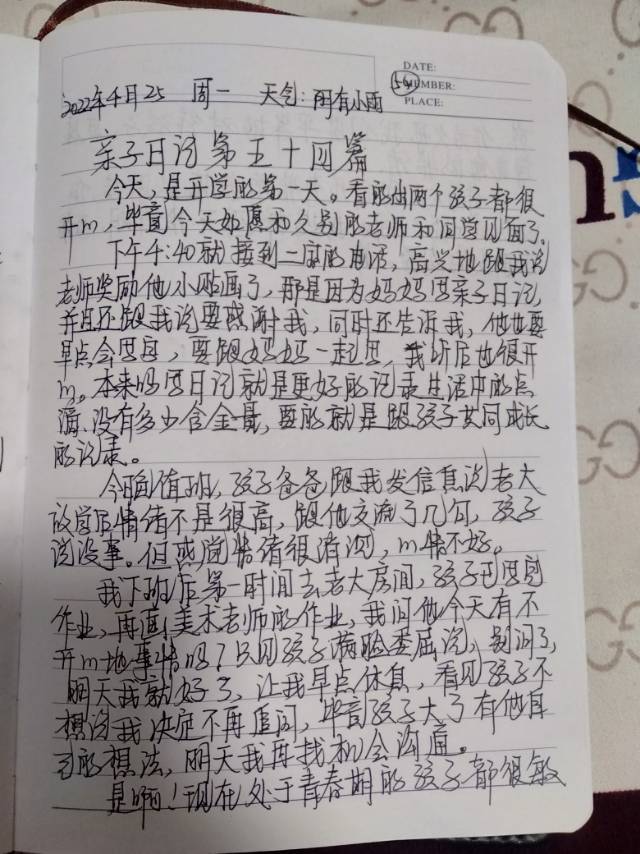 DATE:
54 NUMBER:
PLACE:
2022年4月25 周一 天气:阴有小雨
亲子日记第五十四篇
今天,是开学的第一天。看的出两个孩子都很
开心,毕竟今天如愿和久别的老师和同学见面了。
下午4:40就接到二宝的电话,高兴地跟我说
老师奖励他小贴画了,那是因为妈妈写亲子日记,
并且还跟我说要感谢我,同时还告诉我,他也要
早点会写字,要跟妈妈一起写,我听后也很开
心。本来吗写日记就是更好的记录生活中的点
滴、没有多少含金量,要的就是跟孩子共同成长
的记录。
今晚值班,孩子爸爸跟我发信息说老大
放学后情绪不是很高,跟他交流了几句,孩子
说没事。但感觉情绪很消沉,心情不好。
我下班后第一时间去老大房间,孩子已写完
作业,再画美术老师的作业,我问他今天有不
开心地事情吗?只见孩子满脸委屈说,别问了,
明天我就好了,让我早点休息,看见孩子不
想说我决定不再追问,毕竟孩子大了有他自
己的想法,明天我再找机会沟通。
是啊!现在处于青春期的孩子都很敏